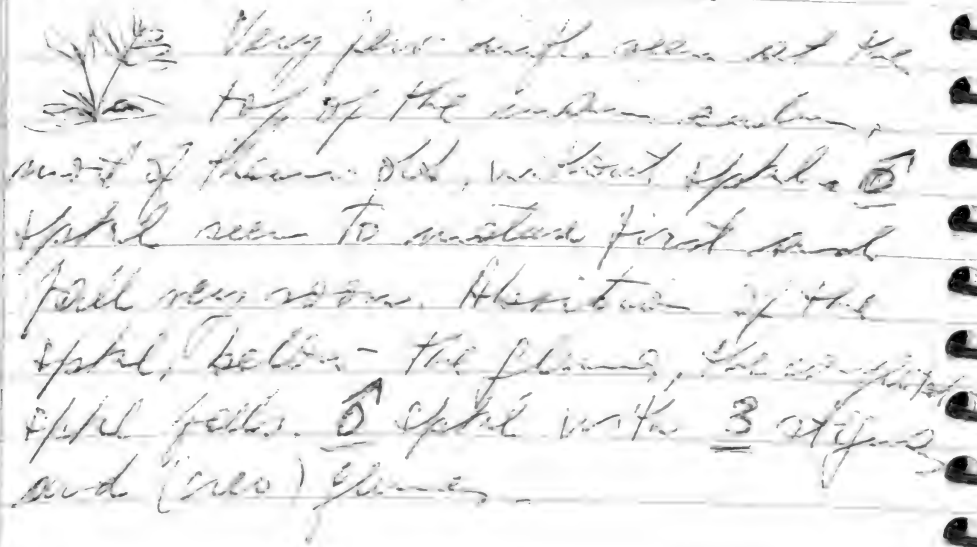 Very few infl. seen at the
top of the
most of them old, without spkl. ♂
spkl seem to mature first and
fall very soon. of the
spkl, below the glume, the complete
spkl falls. ♂ spkl with 3
and (two) glumes.